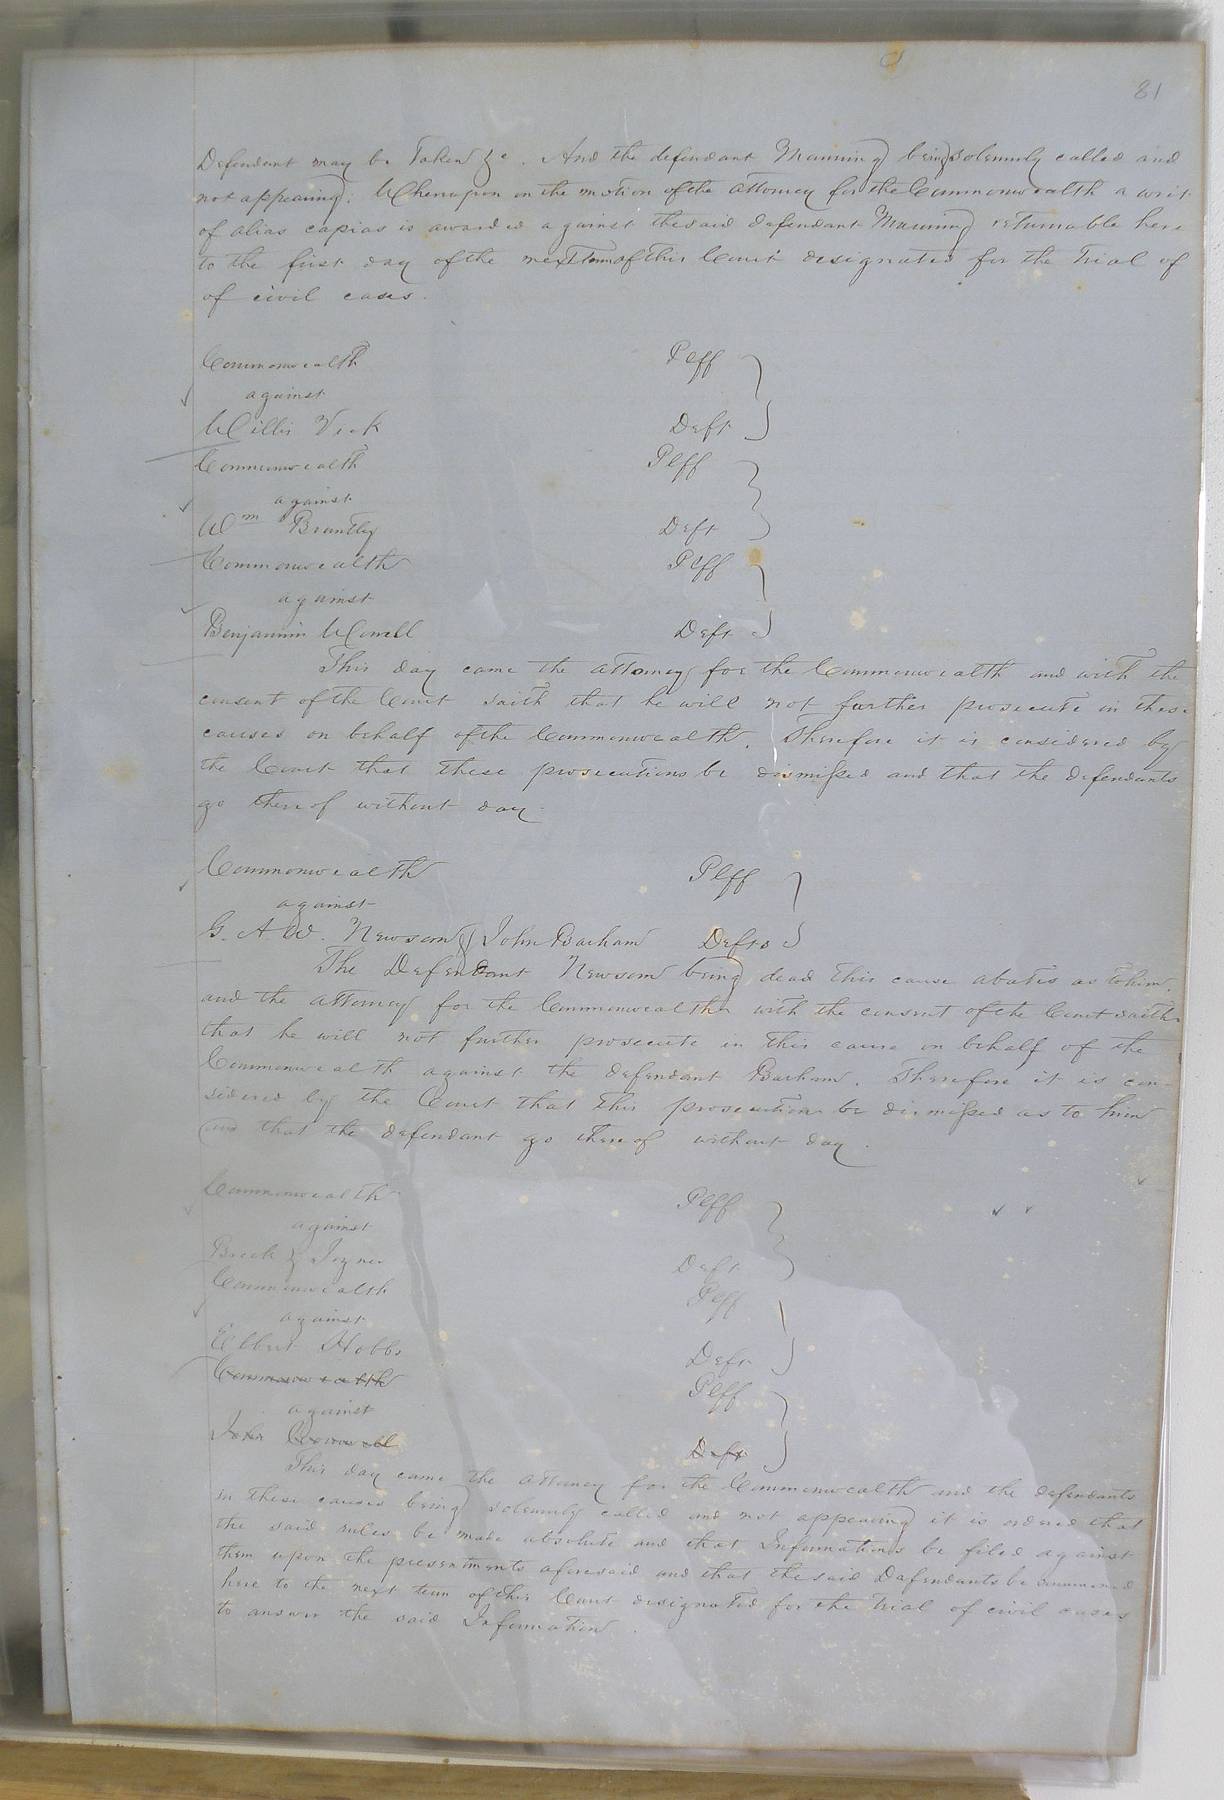 81
Defendant may be Taken &c. And the defendant Manning being solemnly called and
not appearing: Whereupon on the motion of the attorney for the Commonwealth a writ
of alias capias is awarded against the said defendant Manning returnable here
to the first day of the next Term of this Court designated for the Trial of
of civil cases.
Commonwealth Plff
against
Willis Vick Deft
Commonwealth Plff
against
Wm Brantley Deft
Commonwealth Plff
against
Benjamin Deft
This day came the attorney for the Commonwealth and with the
consent of the Court saith that he will not further prosecute in these
causes on behalf of the Commonwealth. Therefore it is considered by
the Court that these prosecutions be dismissed and that the defendants
go thereof without day.
Commonwealth Plff
against
G. A. W. Newsom & John Barham Defts
The Defendant Newsom being dead this cause abates as to him.
and the attorney for the Commonwealth with the consent of the Court saith
that he will not further prosecute in this cause on behalf of the
Commonwealth against the defendant Barham. Therefore it is con-
sidered by the Court that this prosecution be dismissed as to him
and that the defendant go thereof without day.
Commonwealth Plff
against
& Joyner Deft
Commonwealth Plff
against
Elbert Hobbs Deft
Commonwealth Plff
against
John Deft
This day came the attorney for the Commonwealth and the defendants
in these causes being solemnly called and not appearing it is ordered that
the said rules be made absolute and that Informations be filed against
them upon the presentments aforesaid and that the said Defendants be summoned
here to the next term of this Court designated for the Trial of civil cases
to answer the said Information.